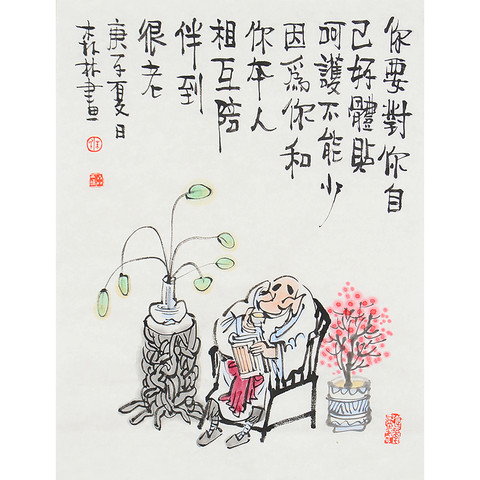 你要對你自
己好體貼
呵護不能少
因爲你和
你本人
相互陪
伴到
很老
庚子夏日
森林畫